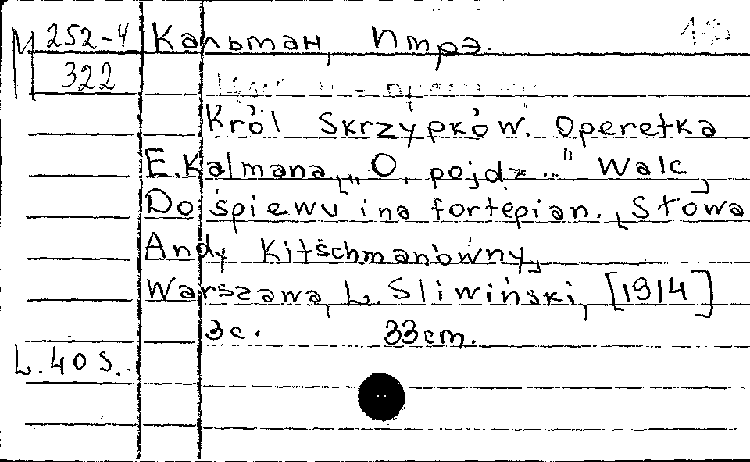 М 252-4
322
Кальман, Имрэ.
Król Skrzypków. Operetka
E. Kalmana, „O, pojdz..." Walc
Do śpiewu i na fortepian. [Słowa
Andy Kitschmanówny]
Warszawa, L. Śliwiński, [1914]
3 с. 33 cm.
L. 40 S.